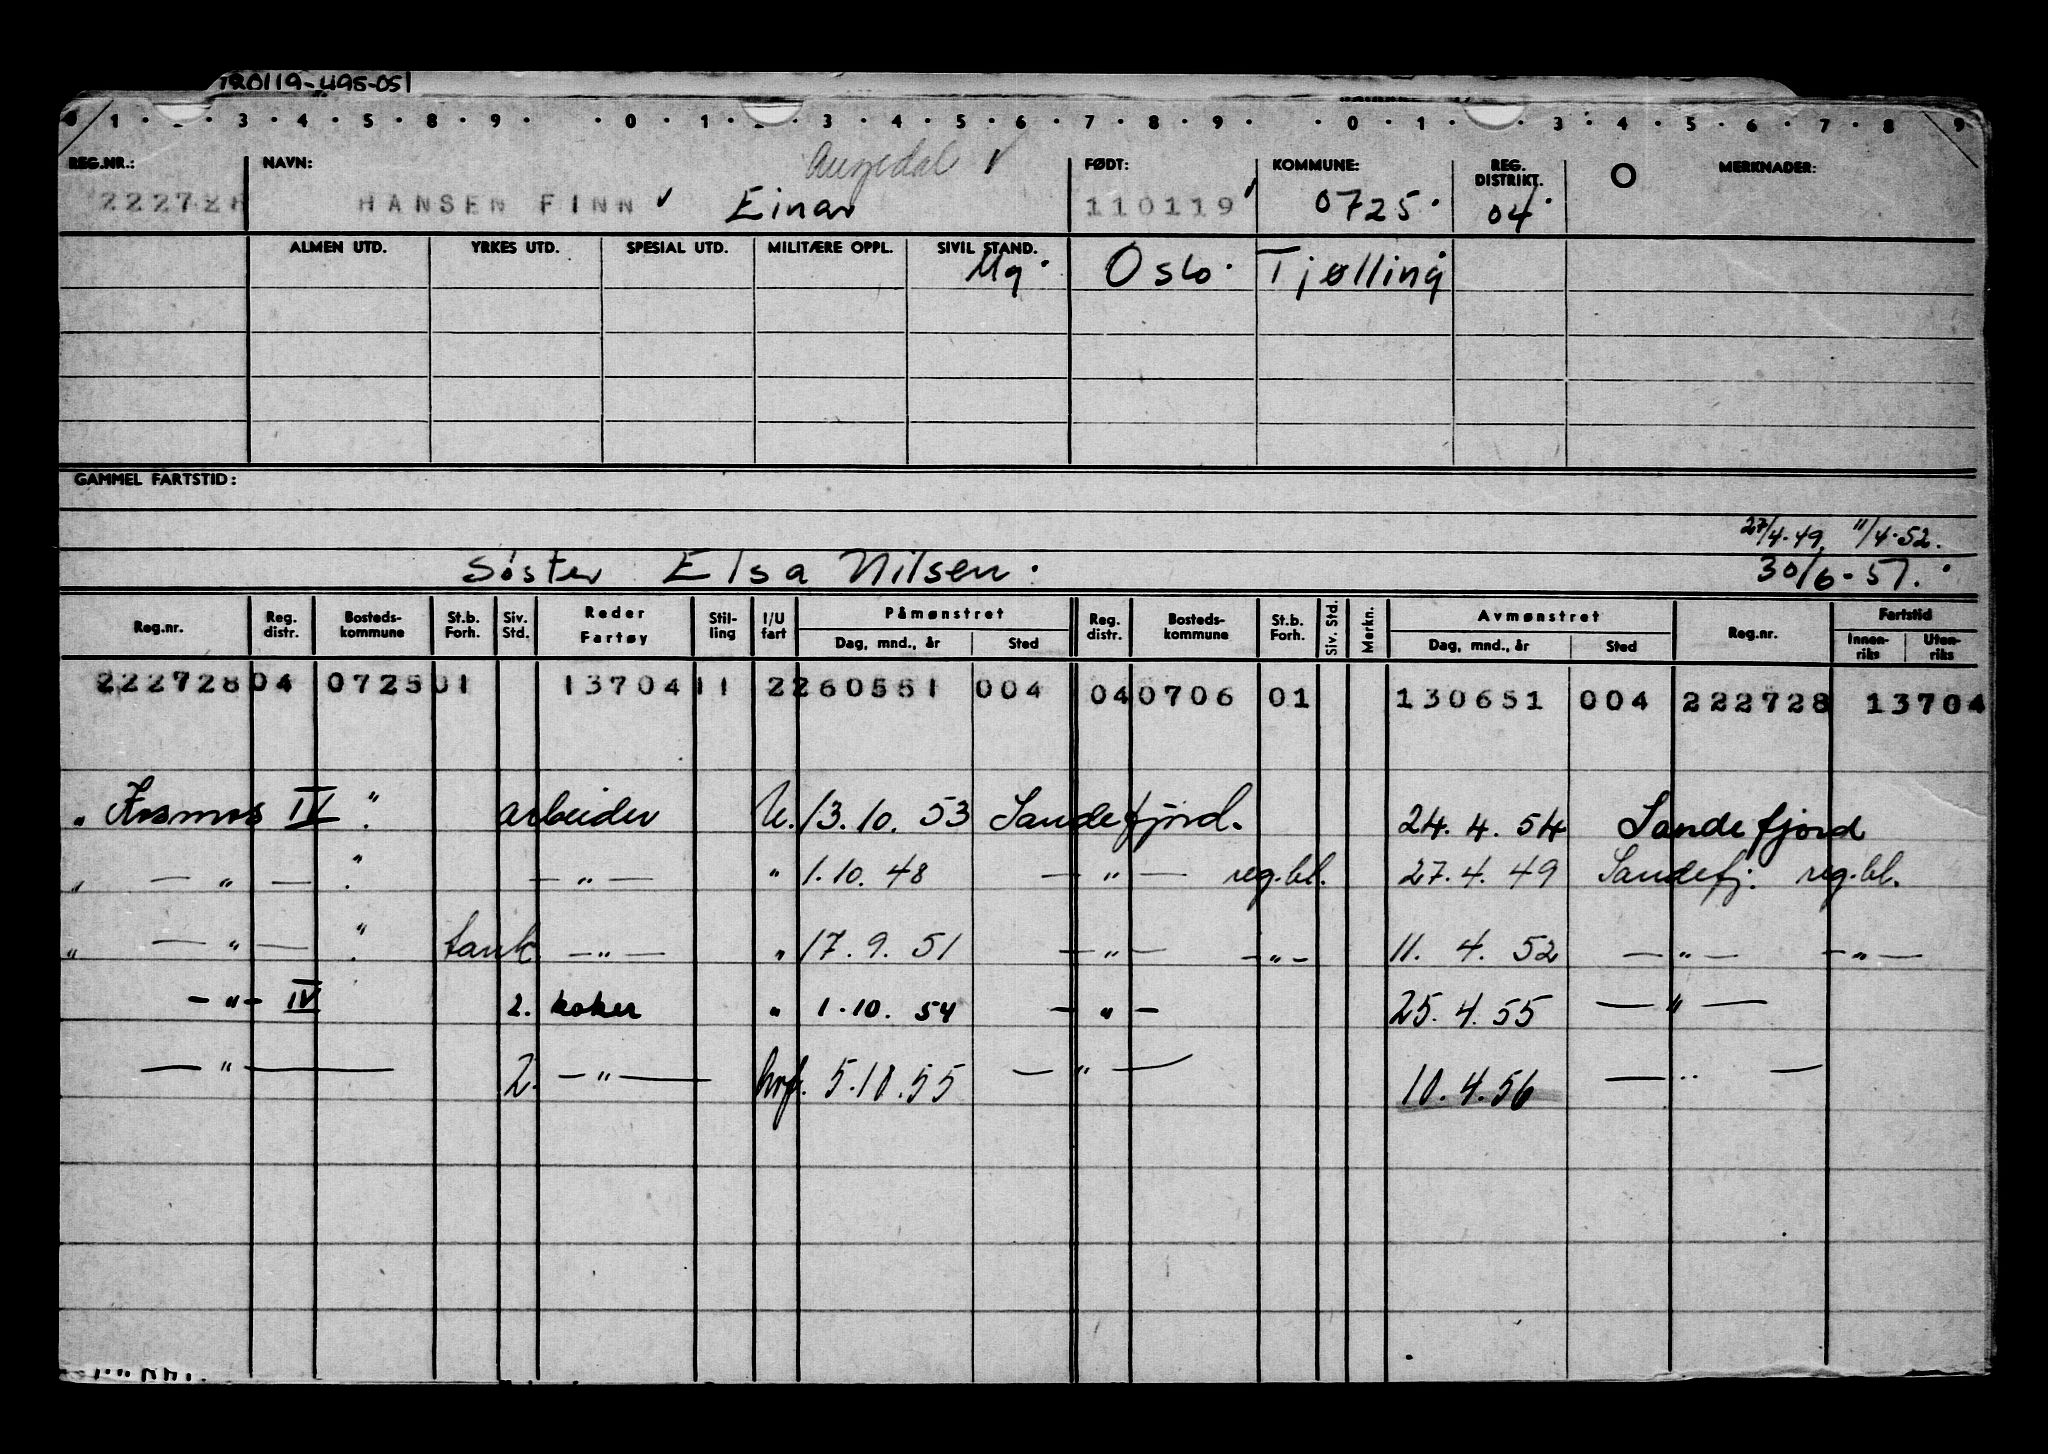 0 1 · 2 · 3 · 4 · 5 · 8 · 9 · · 0 · 1 · 2 · 3 · 4 · 5 · 6 · 7 · 8 · 9 · · 0 · 1 · · 3 · 4 · 5 · 6 · 7 · 8 9
REG.NR.: NAVN: FØDT: KOMMUNE: REG. DISTRIKT. O MERKNADER:
222728 HANSEN FINN ✓ Einar 110119 0725. 04.
ALMEN UTD. YRKES UTD. SPESIAL UTD. MILITÆRE OPPL. SIVIL STAND.
Ug. Oslo. Tjølling
GAMMEL FARTSTID:
27/4.49, 11/4.52.
Søster Elsa Nilsen. 30/6-51.
Reg.nr. Reg. distr. Bosteds- kommune St.b. Forh. Siv. Std. Reder Fartøy Stil- ling I/U fart Påmønstret Dag, mnd., år Sted Reg. distr. Bosteds- kommune St.b. Forh. Siv. Std. Merkn. Avmønstret Dag, mnd., år Sted Reg.nr. Fartstid Innen- riks Uten- riks
222728 04 0725 01 13704 11 2 260551 004 04 0706 01 130651 004 222728 13704
" Kosmos IV " arbeider U. 13.10.53 Sandefjord. 24.4.54 Sandefjord
" — " — " — " — " 1.10.48 — " — reg.bl. 27.4.49 Sandefj. reg.bl.
" — " — " tank — " — " 17.9.51 — " — — " — 11.4.52 — " — — " —
— " — IV 2. koker " 1.10.54 — " — 25.4.55 — " —
— " — 2. — " — hvf. 5.10.55 — " — 10.4.56 — " —